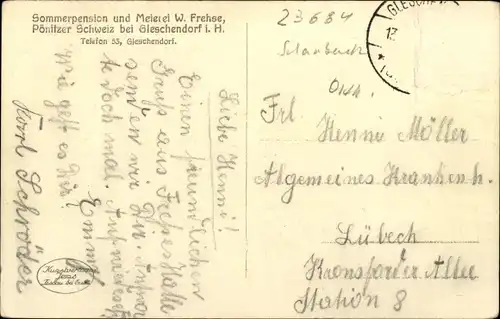 Sommerpension und Meierei W. Frehse,
Pönitzer Schweiz bei Gleschendorf i. H.
Telefon 53, Gleschendorf.
23684
Scharbeutz
OHA.
GLESCHEN
13
Liebe Henni!
Einen freundlichen
Gruß aus Frehses Halle
senden wir Dir. Antwor
te doch mal.
Wie geht es Dir?
Emmy
Karl Schröder
Frl Henni Möller
Algemeines Krankenh.
Lübech
Kronsforder Allee
Station 8
Kunstverlag